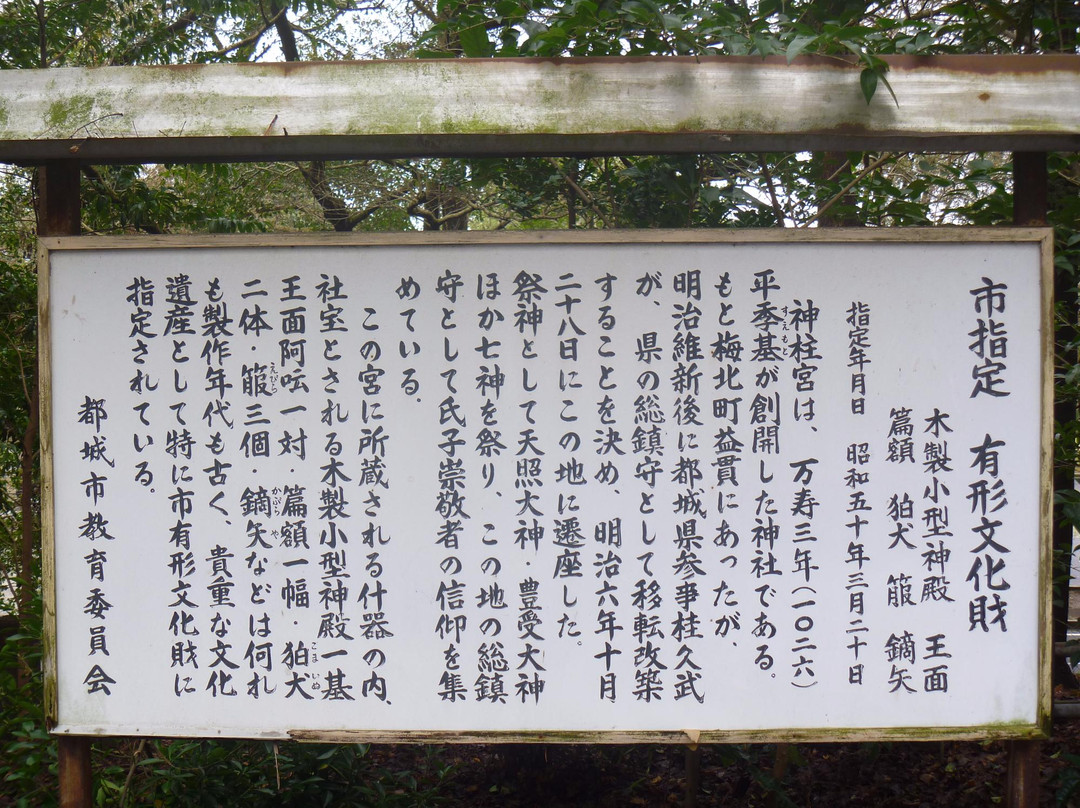 市指定　有形文化財
木製小型神殿　王面
篇額　狛犬　箙　鏑矢
指定年月日　昭和五十年三月二十日
神柱宮は、万寿三年(一〇二六)
平季基が創開した神社である。
すえもと
もと梅北町益貫にあったが、
明治維新後に都城県参事桂久武
が、県の総鎮守として移転改築
することを決め、明治六年十月
二十八日にこの地に遷座した。
祭神として天照大神・豊受大神
ほか七神を祭り、この地の総鎮
守として氏子崇敬者の信仰を集
めている。
この宮に所蔵される什器の内、
社宝とされる木製小型神殿一基
王面阿吽一対・篇額一幅・狛犬
こまいぬ
二体・箙三個・鏑矢などは何れ
えびら
かぶらや
も製作年代も古く、貴重な文化
遺産として特に市有形文化財に
指定されている。
都城市教育委員会